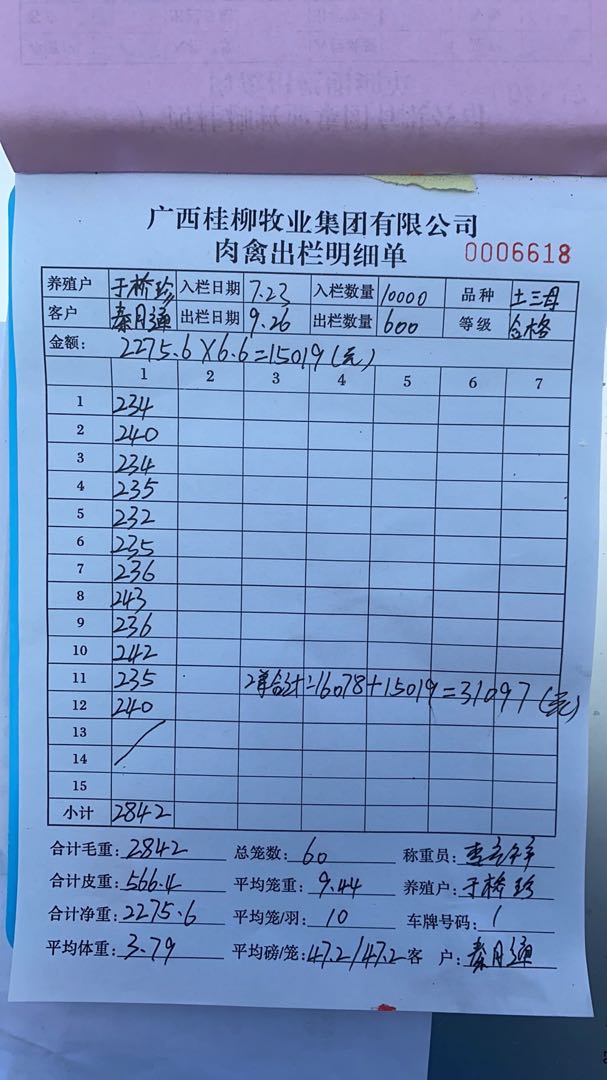 广西桂柳牧业集团有限公司
肉禽出栏明细单 0006618
养殖户 于桥珍 入栏日期 7.23 入栏数量 10000 品种 土三母
客户 秦月通 出栏日期 9.26 出栏数量 600 等级 合格
金额: 2275.6×6.6=15019(元)
1 2 3 4 5 6 7
1 234
2 240
3 234
4 235
5 232
6 235
7 236
8 243
9 236
10 242
11 235 2单合计=16078+15019=31097(元)
12 240
13
14
15
小计 2842
合计毛重: 2842 总笼数: 60 称重员:
合计皮重: 566.4 平均笼重: 9.44 养殖户: 于桥珍
合计净重: 2275.6 平均笼/羽: 10 车牌号码: 1
平均体重: 3.79 平均磅/笼: 47.2/47.2 客 户: 秦月通